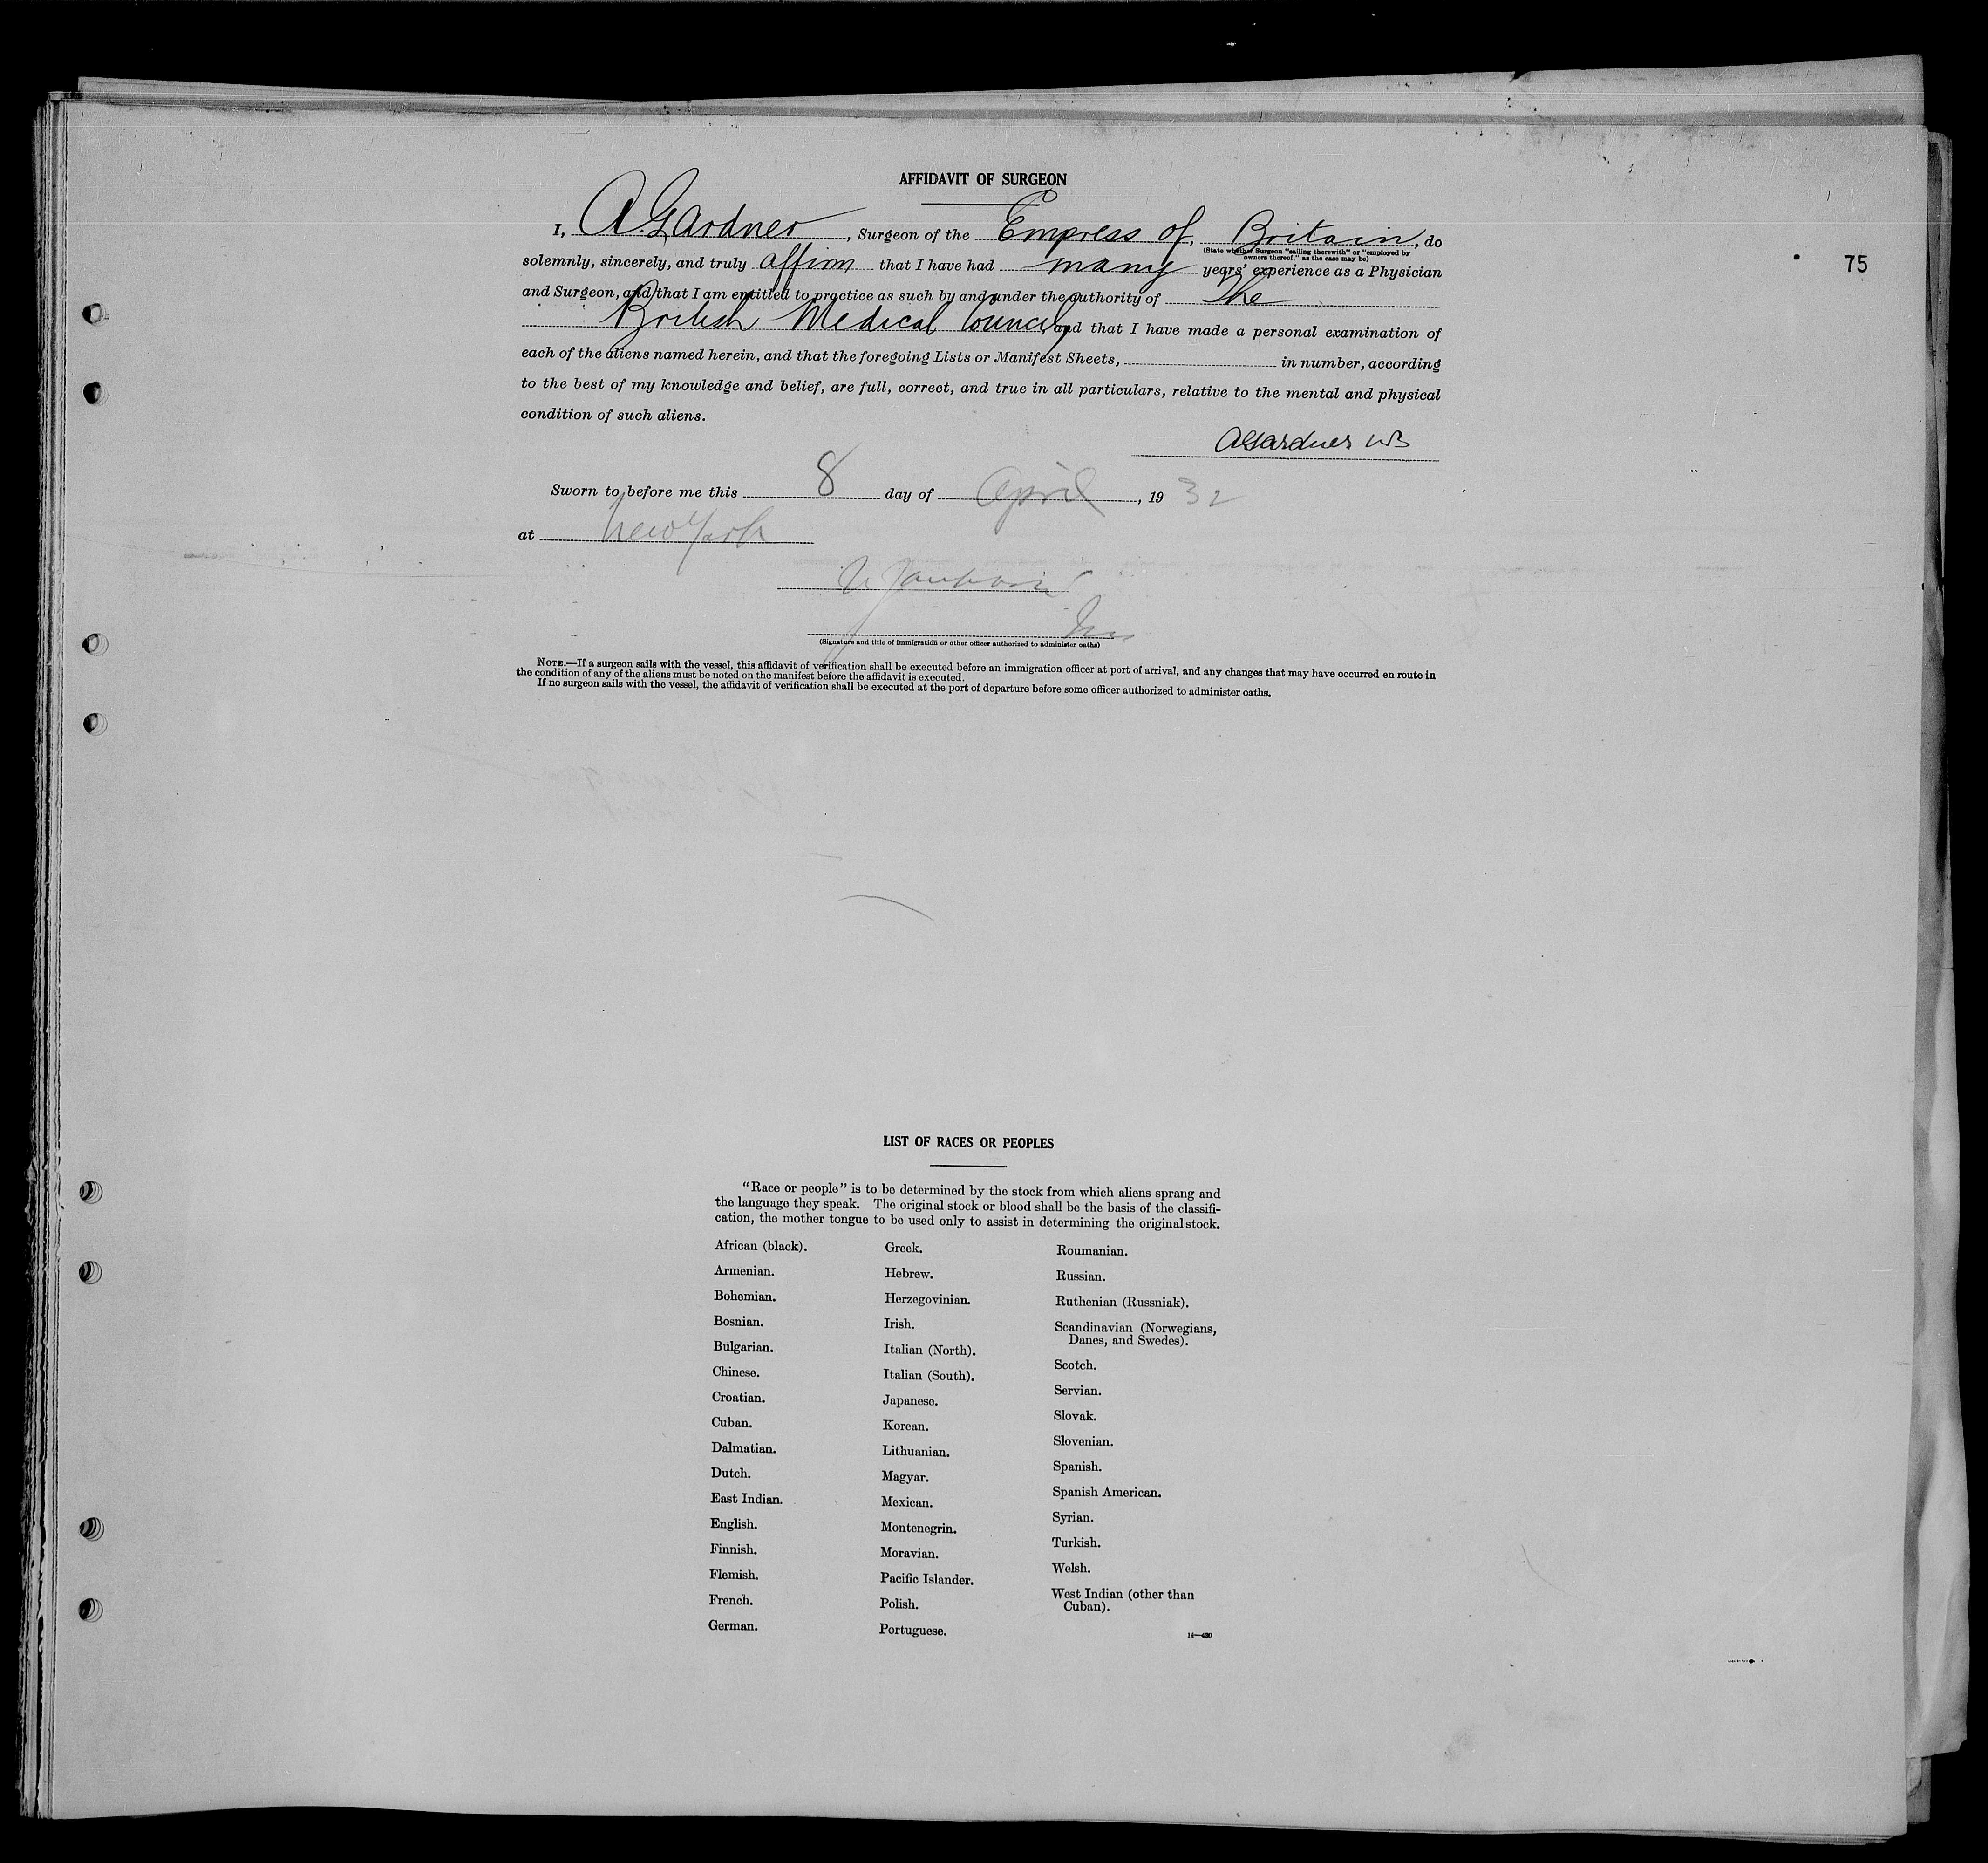 AFFIDAVIT OF SURGEON
I, A. Gardner, Surgeon of the Empress of, Britain, do
(State whether Surgeon "sailing therewith" or "employed by
owners thereof," as the case may be)
75
solemnly, sincerely, and truly affirm that I have had many years' experience as a Physician
and Surgeon, and that I am entitled to practice as such by and under the authority of The
British Medical Council, and that I have made a personal examination of
each of the aliens named herein, and that the foregoing Lists or Manifest Sheets, in number, according
to the best of my knowledge and belief, are full, correct, and true in all particulars, relative to the mental and physical
condition of such aliens.
A Gardner
Sworn to before me this 8 day of April, 19 32
at New York
(Signature and title of immigration or other officer authorized to administer oaths)
NOTE.—If a surgeon sails with the vessel, this affidavit of verification shall be executed before an immigration officer at port of arrival, and any changes that may have occurred en route in
the condition of any of the aliens must be noted on the manifest before the affidavit is executed.
If no surgeon sails with the vessel, the affidavit of verification shall be executed at the port of departure before some officer authorized to administer oaths.
LIST OF RACES OR PEOPLES
"Race or people" is to be determined by the stock from which aliens sprang and
the language they speak. The original stock or blood shall be the basis of the classifi-
cation, the mother tongue to be used only to assist in determining the original stock.
African (black).
Armenian.
Bohemian.
Bosnian.
Bulgarian.
Chinese.
Croatian.
Cuban.
Dalmatian.
Dutch.
East Indian.
English.
Finnish.
Flemish.
French.
German.
Greek.
Hebrew.
Herzegovinian.
Irish.
Italian (North).
Italian (South).
Japanese.
Korean.
Lithuanian.
Magyar.
Mexican.
Montenegrin.
Moravian.
Pacific Islander.
Polish.
Portuguese.
Roumanian.
Russian.
Ruthenian (Russniak).
Scandinavian (Norwegians,
Danes, and Swedes).
Scotch.
Servian.
Slovak.
Slovenian.
Spanish.
Spanish American.
Syrian.
Turkish.
Welsh.
West Indian (other than
Cuban).
14—430